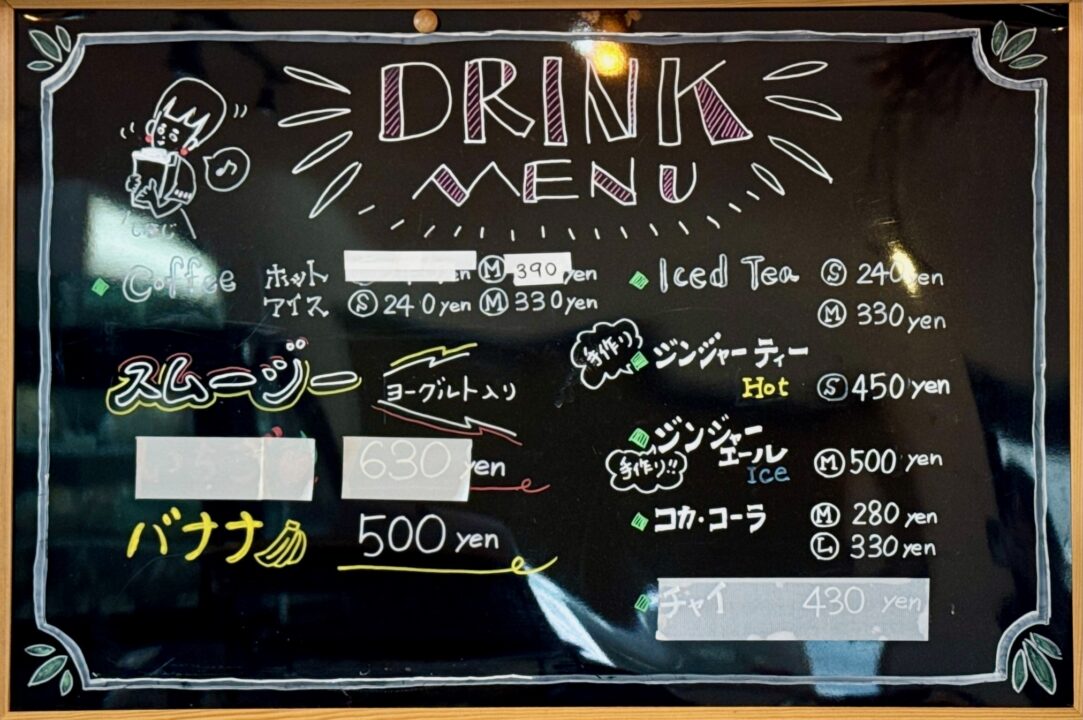 DRINK
MENU
♪
Coffee ホット Ⓜ 390 yen
アイス Ⓢ 240 yen Ⓜ 330 yen
スムージー ヨーグルト入り
630 yen
バナナ 500 yen
Iced Tea Ⓢ 240 yen
Ⓜ 330 yen
手作り
ジンジャーティー
Hot Ⓢ 450 yen
ジンジャー
エール
手作り!!
Ice Ⓜ 500 yen
コカ・コーラ Ⓜ 280 yen
Ⓛ 330 yen
チャイ 430 yen